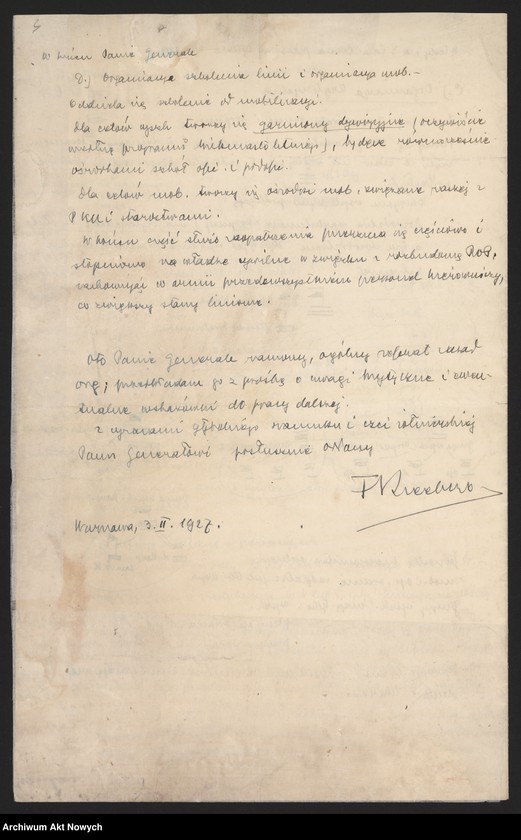 w końcu Panie Generale
D.) Organizacja szkolenia linii i organizacja mob. –
Oddziela się szkolenie od mobilizacji.
Dla celów wyszk. tworzy się garnizony dywizyjne (oczywiście
według programu), będące równocześnie
ośrodkami szkół ofic. i podofic.
Dla celów mob. tworzy się ośrodki mob. związane raczej z
PKU i starostwami.
W końcu część służb zaopatrzenia przerzuca się częściowo i
stopniowo na władze cywilne w związku z rozbudową ROP,
w armii przedewszystkiem personel,
co zwiększy stany liniowe.
Oto Panie Generale, ogólny referat zasad
org; przedkładam go z prośbą o uwagi krytyczne i ewen-
tualne wskazówki do pracy dalszej.
z wyrazami głębokiego szacunku i czci żołnierskiej
Panu Generałowi posłusznie oddany
Warszawa, 3.II.1927.
Archiwum Akt Nowych